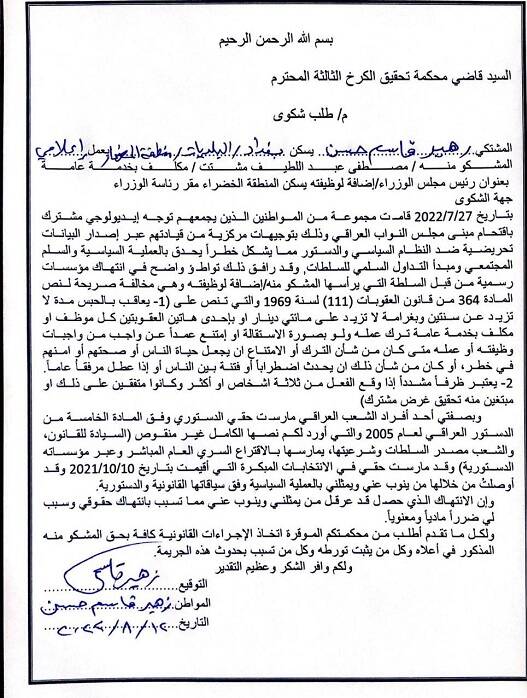 بسم الله الرحمن الرحيم
السيد قاضي محكمة تحقيق الكرخ الثالثة المحترم
م/ طلب شكوى
المشتكي/ زهير قاسم حسن يسكن بغداد/ البلديات/ يعمل/ إعلامي
المشكو منه / مصطفى عبد اللطيف مشتت / مكلف بخدمة عامة
بعنوان رئيس مجلس الوزراء/إضافة لوظيفته يسكن المنطقة الخضراء مقر رئاسة الوزراء
جهة الشكوى
بتاريخ 2022/7/27 قامت مجموعة من المواطنين الذين يجمعهم توجه إيديولوجي مشترك
باقتحام مبنى مجلس النواب العراقي وذلك بتوجيهات مركزية من قيادتهم عبر إصدار البيانات
تحريضية ضد النظام السياسي والدستور مما يشكل خطراً يحدق بالعملية السياسية والسلم
المجتمعي ومبدأ التداول السلمي للسلطات, وقد رافق ذلك تواطؤ واضح في انتهاك مؤسسات
رسمية من قبل السلطة التي يرأسها المشكو منه/إضافة لوظيفته وهي مخالفة صريحة لنص
المادة 364 من قانون العقوبات (111) لسنة 1969 والتي تنص على (1- يعاقب بالحبس مدة لا
تزيد عن سنتين وبغرامة لا تزيد على مائتي دينار او بإحدى هاتين العقوبتين كل موظف او
مكلف بخدمة عامة ترك عمله ولو بصورة الاستقالة او إمتنع عمداً عن واجب من واجبات
وظيفته أو عمله متى كان من شأن الترك او الامتناع ان يجعل حياة الناس أو صحتهم أو امنهم
في خطر، أو كان من شأن ذلك ان يحدث اضطراباً أو فتنة بين الناس أو إذا عطل مرفقاً عاماً.
2- يعتبر ظرفاً مشدداً إذا وقع الفعل من ثلاثة اشخاص او أكثر وكانوا متفقين على ذلك او
مبتغين منه تحقيق غرض مشترك)
وبصفتي أحد أفراد الشعب العراقي مارست حقي الدستوري وفق المادة الخامسة من
الدستور العراقي لعام 2005 والتي أورد لكم نصها الكامل غير منقوص (السيادة للقانون،
والشعب مصدر السلطات وشرعيتها، يمارسها بالاقتراع السري العام المباشر وعبر مؤسساته
الدستورية) وقد مارست حقي في الانتخابات المبكرة التي أقيمت بتاريخ 2021/10/10 وقد
أوصلتُ من خلالها من ينوب عني ويمثلني بالعملية السياسية وفق سياقاتها القانونية والدستورية.
وإن الانتهاك الذي حصل قد عرقل من يمثلني وينوب عني مما تسبب بانتهاك حقوقي وسبب
لي ضرراً مادياً ومعنوياً.
ولكل ما تقدم أطلب من محكمتكم الموقرة اتخاذ الإجراءات القانونية كافة بحق المشكو منه
المذكور في أعلاه وكل من يثبت تورطه وكل من تسبب بحدوث هذه الجريمة.
ولكم وافر الشكر وعظيم التقدير
التوقيع زهير قاسم
المواطن زهير قاسم حسن
التاريخ ٢٠٢٢/٨/١٢